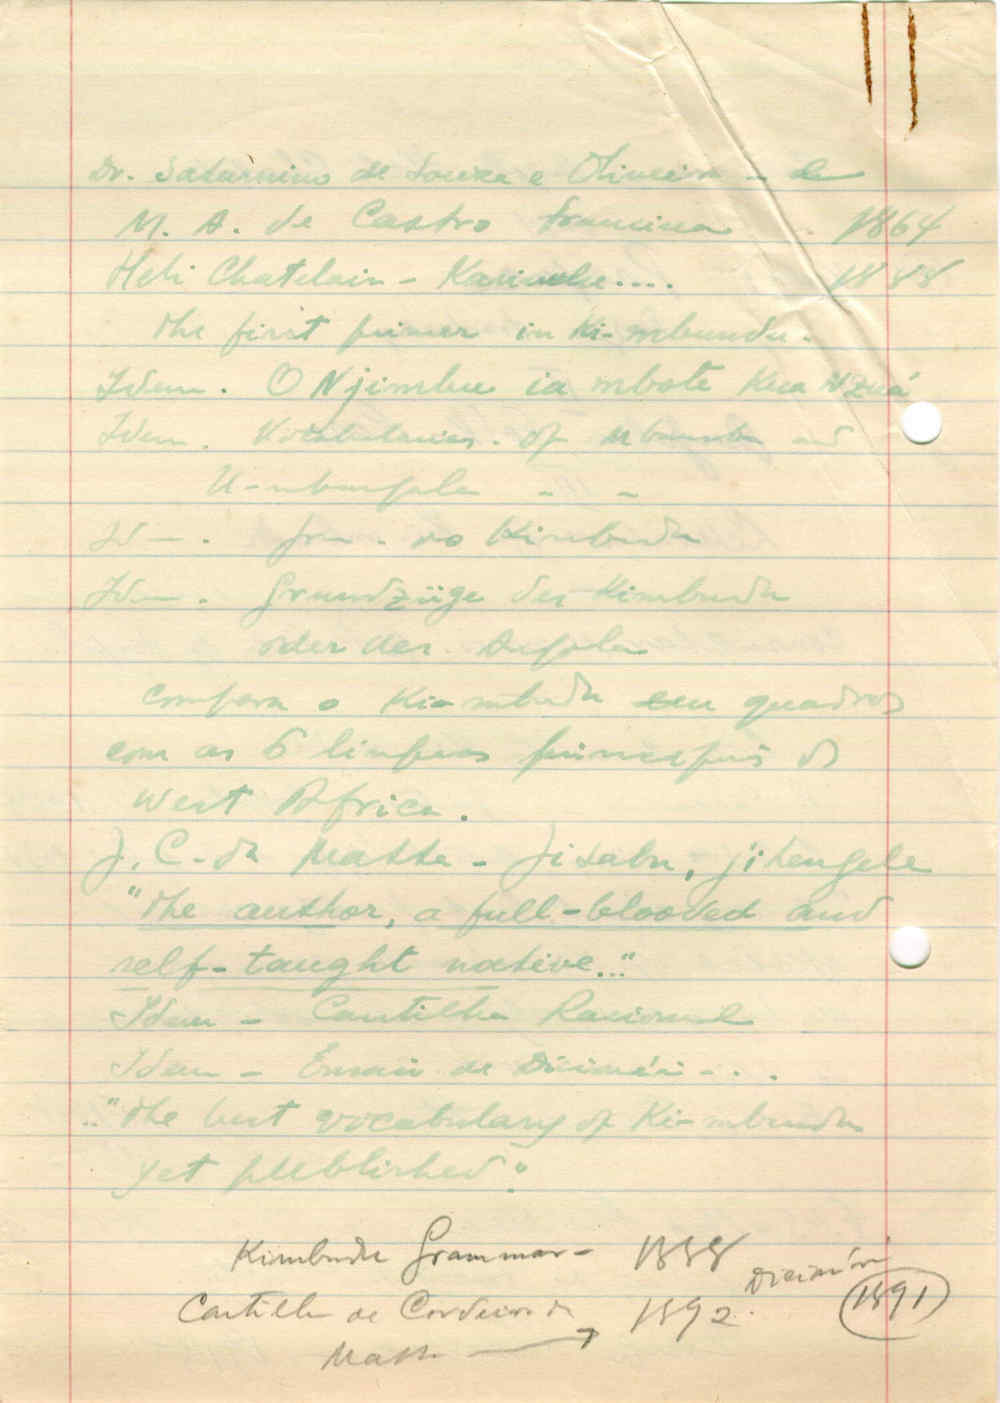 Dr. Saturnino de Souza e Oliveira - de
M. A. de Castro Francina . 1864
Heli Chatelain - Karivulu.... 1888
the first primer in Ki-mbundu.
Idem. O Njimbu ia mbote Kua Nzuá
Idem. Vocabularies of Mbamba and
U-mbangala - -
Id-. Gra. do Kimbundu
Idem. Grundzüge des Kimbundu
oder der Angola
compara o Ki-mbundu em quadros
com as 6 linguas principais de
West Africa.
J. C. da Matta - Jisabu, jihengele
"the author, a full-blooded and
self-taught native..."
Idem - Cartilha Racional
Idem - Ensaio de Diccionári-...
.."the best vocabulary of Ki-mbundu
yet published".
Kimbundu Grammar - 1888
Dicionári
Cartilha de Cordeiro da 1892. 1891
Matta